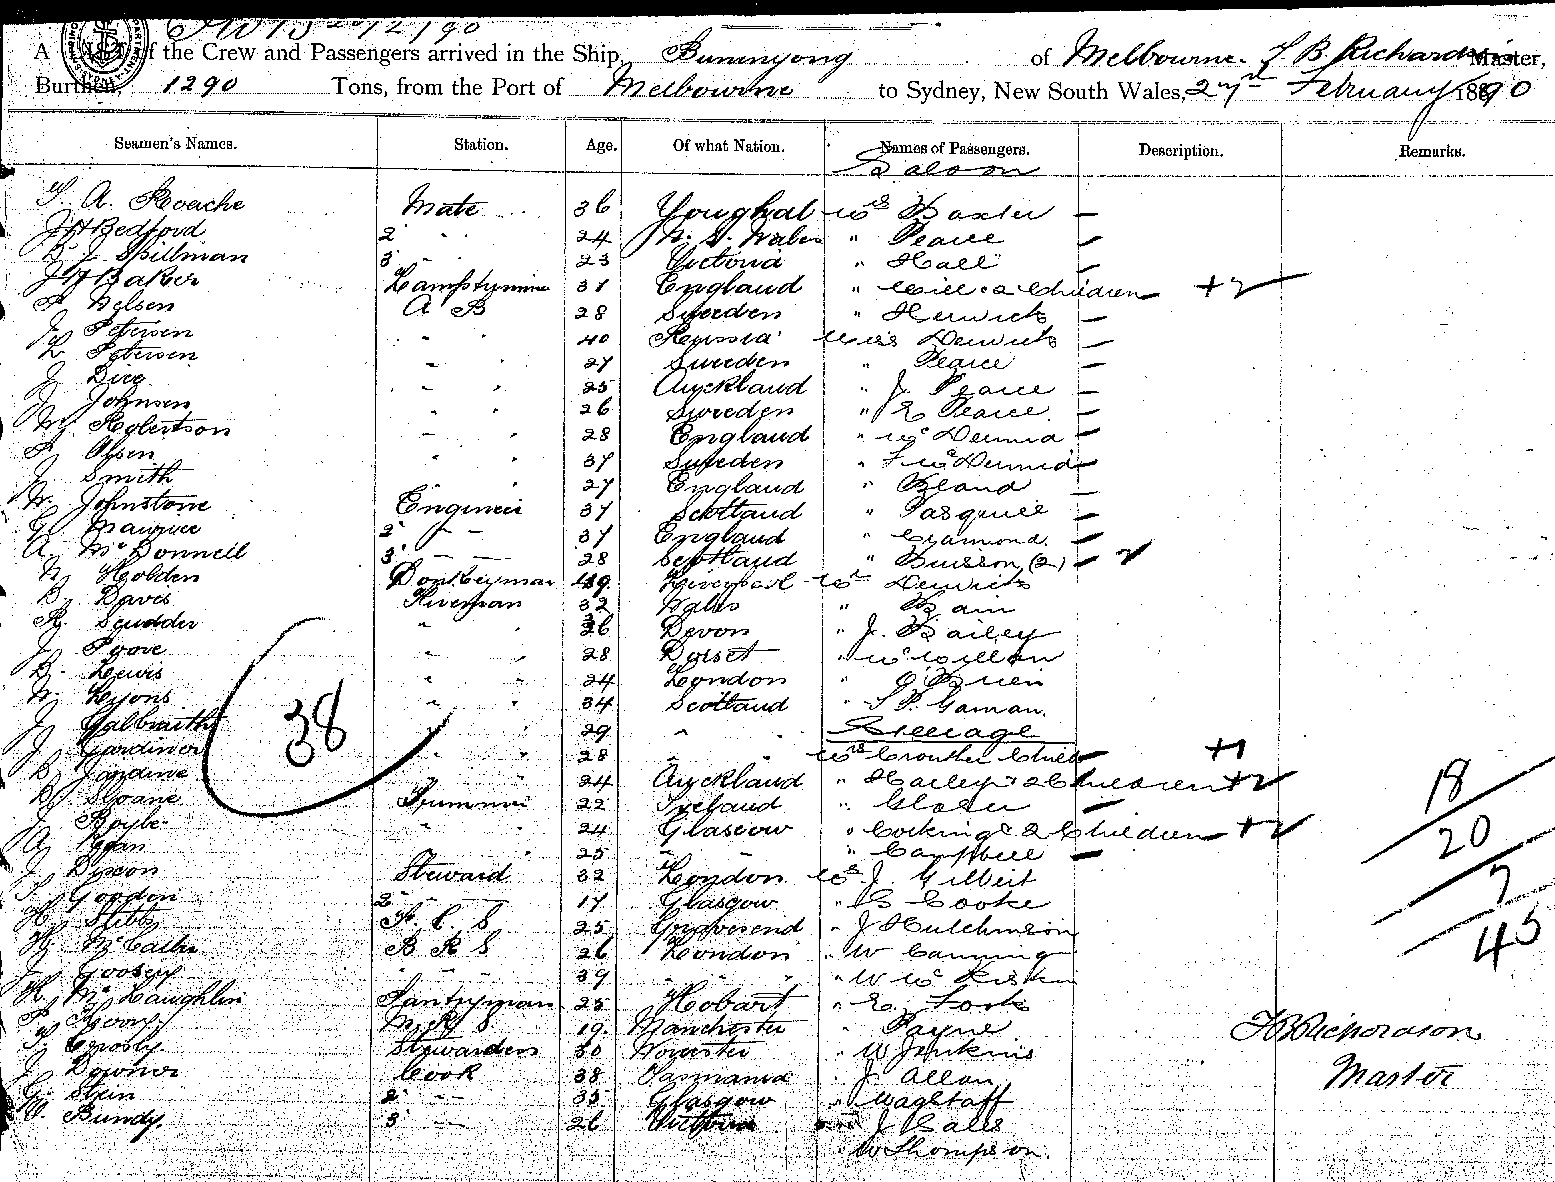 A LIST of the Crew and Passengers arrived in the Ship, Buninyong of Melbourne. Master,
Burthen, 1290 Tons, from the Port of Melbourne to Sydney, New South Wales, 27th February 1890
Seamen's Names. Station. Age. Of what Nation. Names of Passengers. Description. Remarks.
Saloon
A. Roache Mate 36 Youghal Mrs Baxter —
J H Bedford 2 " 24 N. S. Wales " Pearce —
J. Spillman 3 " 23 Victoria " Hall —
J H Baker Lamptrimmer 31 England " & 2 Children — +2
Nelsen A B 28 Sweden " Herwick —
Petersen " " 40 Russia Miss Derwick —
Petersen " " 27 Sweden " Pearce —
J Dice " " 25 Auckland " J. Pearce —
J Johnsen " " 26 Sweden " E Pearce —
W Robertson " " 28 England " McDermid —
Olsen " " 37 Sweden " F McDermid —
J Smith " " 27 England " Bland —
W. Johnstone Engineer 37 Scotland " Pasquill —
G 2 " 37 England " Cramond —
A McDonnell 3 " 28 Scotland " Buisson (2) —
W Holden Donkeyman 49 Liverpool Mr Derwick
B Davis Fireman 32 Wales " Bain
R Scudder " " 26 Devon " J. Bailey
J Poove " " 28 Dorset " McMillan
B Lewis " " 24 London " O'Brien
W Lyons " " 34 Scotland " Gaman.
38
J Galbraith " " 29 " " Steerage
J Gardiner " " 28 Mrs Crowther Child — +1
Jardine " " 24 Auckland " Hailey & 2 Children +2
Sloane Trimmer 22 Ireland " Glasen —
J Boyle " " 24 Glasgow " Cocking & 2 Children — +2
A Egan " " 25 " " " Campbell —
J Dyson Steward 32 London Mr J. Gilbert
Goodon 2 " 17 Glasgow " C Cooke
H Stibbs F. C S 25 Gravesend " J Hutchinson
McCallum B R S 26 London " W Canning
J Goosey " " " 39 " " " W
H McLaughlin Pantryman 25 Hobart " E Fook
M. R S 19 Manchester " Payne
Crosby Stewardess 30 Worcester " W Jenkins
J Downer Cook 38 Tasmania " J Allan
G Stein 2 " 35 Glasgow " Wagstaff
Bundy. 3 " 26 Victoria " J
" W Thompson.
18
20
7
45
Richardson
Master